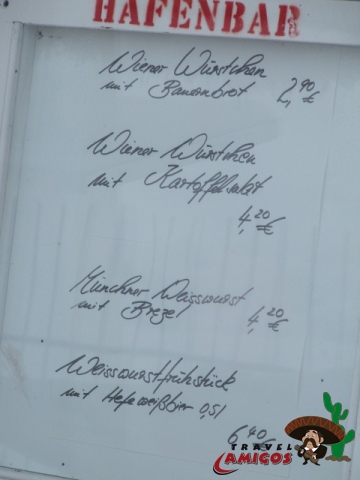 HAFENBAR
Wiener Würstchen
mit Bauernbrot 2,90 €
Wiener Würstchen
mit Kartoffelsalat
4,20 €
Münchner Weisswurst
mit Brezel 4,20 €
Weisswurstfrühstück
mit Hefeweißbier 0,5l
6,40 €
TRAVEL
AMIGOS